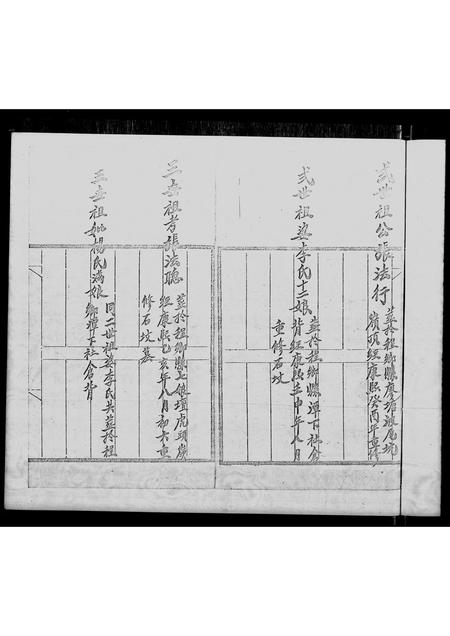 貳世祖公張法行
葬於程鄉縣廖塘披尾坑
嶺頂經康熙癸酉年重修
貳世祖妣李氏十二娘
葬於程鄉縣潭下社倉
背經康熙壬申年八月
重修石坟
三世祖考張法聰
葬於程鄉縣七娘壇虎頭崗
經康熙乙亥年八月初六重
修石坟墓
三世祖妣楊氏滿娘
同二世祖妣李氏共葬於程
鄉潭下社倉背